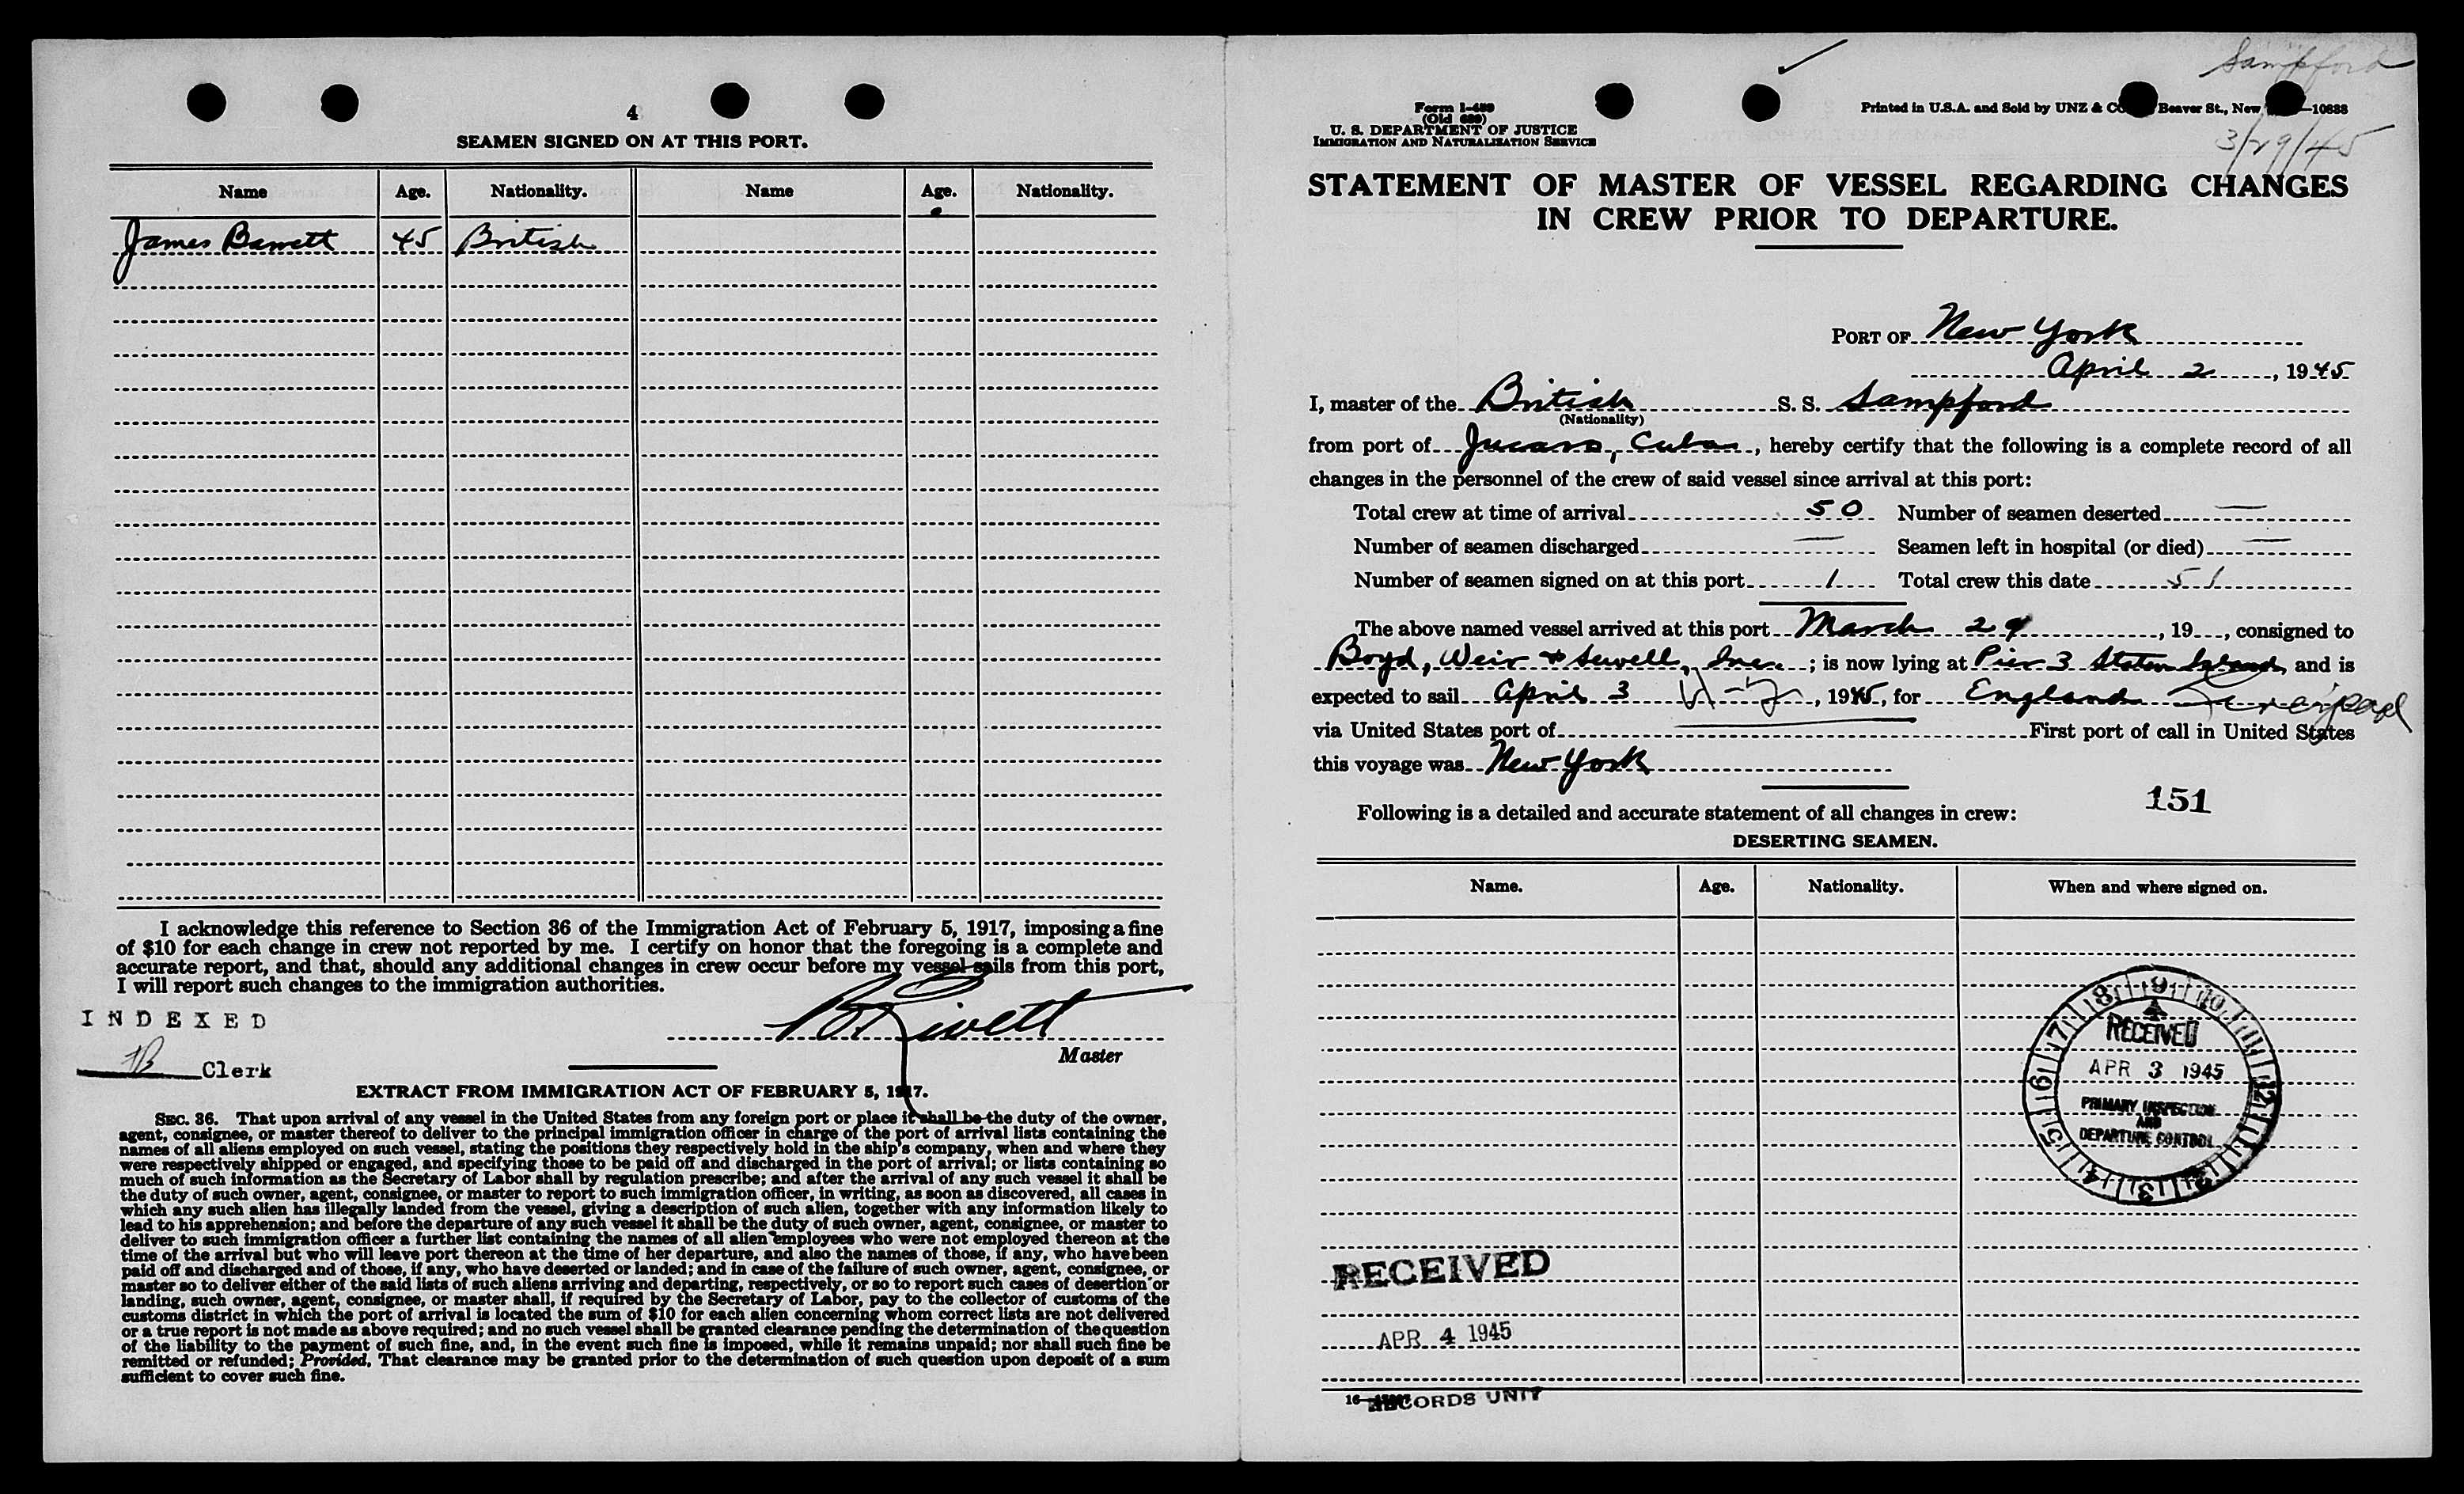 4
SEAMEN SIGNED ON AT THIS PORT.
Name Age. Nationality. Name Age. Nationality.
James Barrett 45 British
I acknowledge this reference to Section 36 of the Immigration Act of February 5, 1917, imposing a fine
of $10 for each change in crew not reported by me. I certify on honor that the foregoing is a complete and
accurate report, and that, should any additional changes in crew occur before my vessel sails from this port,
I will report such changes to the immigration authorities.
INDEXED
Clerk
Master
EXTRACT FROM IMMIGRATION ACT OF FEBRUARY 5, 1917.
SEC. 36. That upon arrival of any vessel in the United States from any foreign port or place it shall be the duty of the owner,
agent, consignee, or master thereof to deliver to the principal immigration officer in charge of the port of arrival lists containing the
names of all aliens employed on such vessel, stating the positions they respectively hold in the ship's company, when and where they
were respectively shipped or engaged, and specifying those to be paid off and discharged in the port of arrival; or lists containing so
much of such information as the Secretary of Labor shall by regulation prescribe; and after the arrival of any such vessel it shall be
the duty of such owner, agent, consignee, or master to report to such immigration officer, in writing, as soon as discovered, all cases in
which any such alien has illegally landed from the vessel, giving a description of such alien, together with any information likely to
lead to his apprehension; and before the departure of any such vessel it shall be the duty of such owner, agent, consignee, or master to
deliver to such immigration officer a further list containing the names of all alien employees who were not employed thereon at the
time of the arrival but who will leave port thereon at the time of her departure, and also the names of those, if any, who have been
paid off and discharged and of those, if any, who have deserted or landed; and in case of the failure of such owner, agent, consignee, or
master so to deliver either of the said lists of such aliens arriving and departing, respectively, or so to report such cases of desertion or
landing, such owner, agent, consignee, or master shall, if required by the Secretary of Labor, pay to the collector of customs of the
customs district in which the port of arrival is located the sum of $10 for each alien concerning whom correct lists are not delivered
or a true report is not made as above required; and no such vessel shall be granted clearance pending the determination of the question
of the liability to the payment of such fine, and, in the event such fine is imposed, while it remains unpaid; nor shall such fine be
remitted or refunded; Provided, That clearance may be granted prior to the determination of such question upon deposit of a sum
sufficient to cover such fine.
Sampford
Form I-489
(Old 689)
U. S. DEPARTMENT OF JUSTICE
IMMIGRATION AND NATURALIZATION SERVICE
Printed in U.S.A. and Sold by UNZ & Beaver St., New —10838
3/29/45
STATEMENT OF MASTER OF VESSEL REGARDING CHANGES
IN CREW PRIOR TO DEPARTURE.
PORT OF New York
April 2, 1945
I, master of the British S. S. Sampford
(Nationality)
from port of Jucaro, Cuba, hereby certify that the following is a complete record of all
changes in the personnel of the crew of said vessel since arrival at this port:
Total crew at time of arrival 50 Number of seamen deserted —
Number of seamen discharged — Seamen left in hospital (or died) —
Number of seamen signed on at this port 1 Total crew this date 51
The above named vessel arrived at this port March 29, 19 , consigned to
Boyd, Weir & Sewell, Inc.; is now lying at Pier 3 Staten Island and is
expected to sail April 3, 1945, for England
via United States port of First port of call in United States
this voyage was New York
151
Following is a detailed and accurate statement of all changes in crew:
DESERTING SEAMEN.
Name. Age. Nationality. When and where signed on.
RECEIVED
APR 3 1945
PRIMARY INSPECTION
AND
DEPARTURE CONTROL
RECEIVED
APR 4 1945
RECORDS UNIT